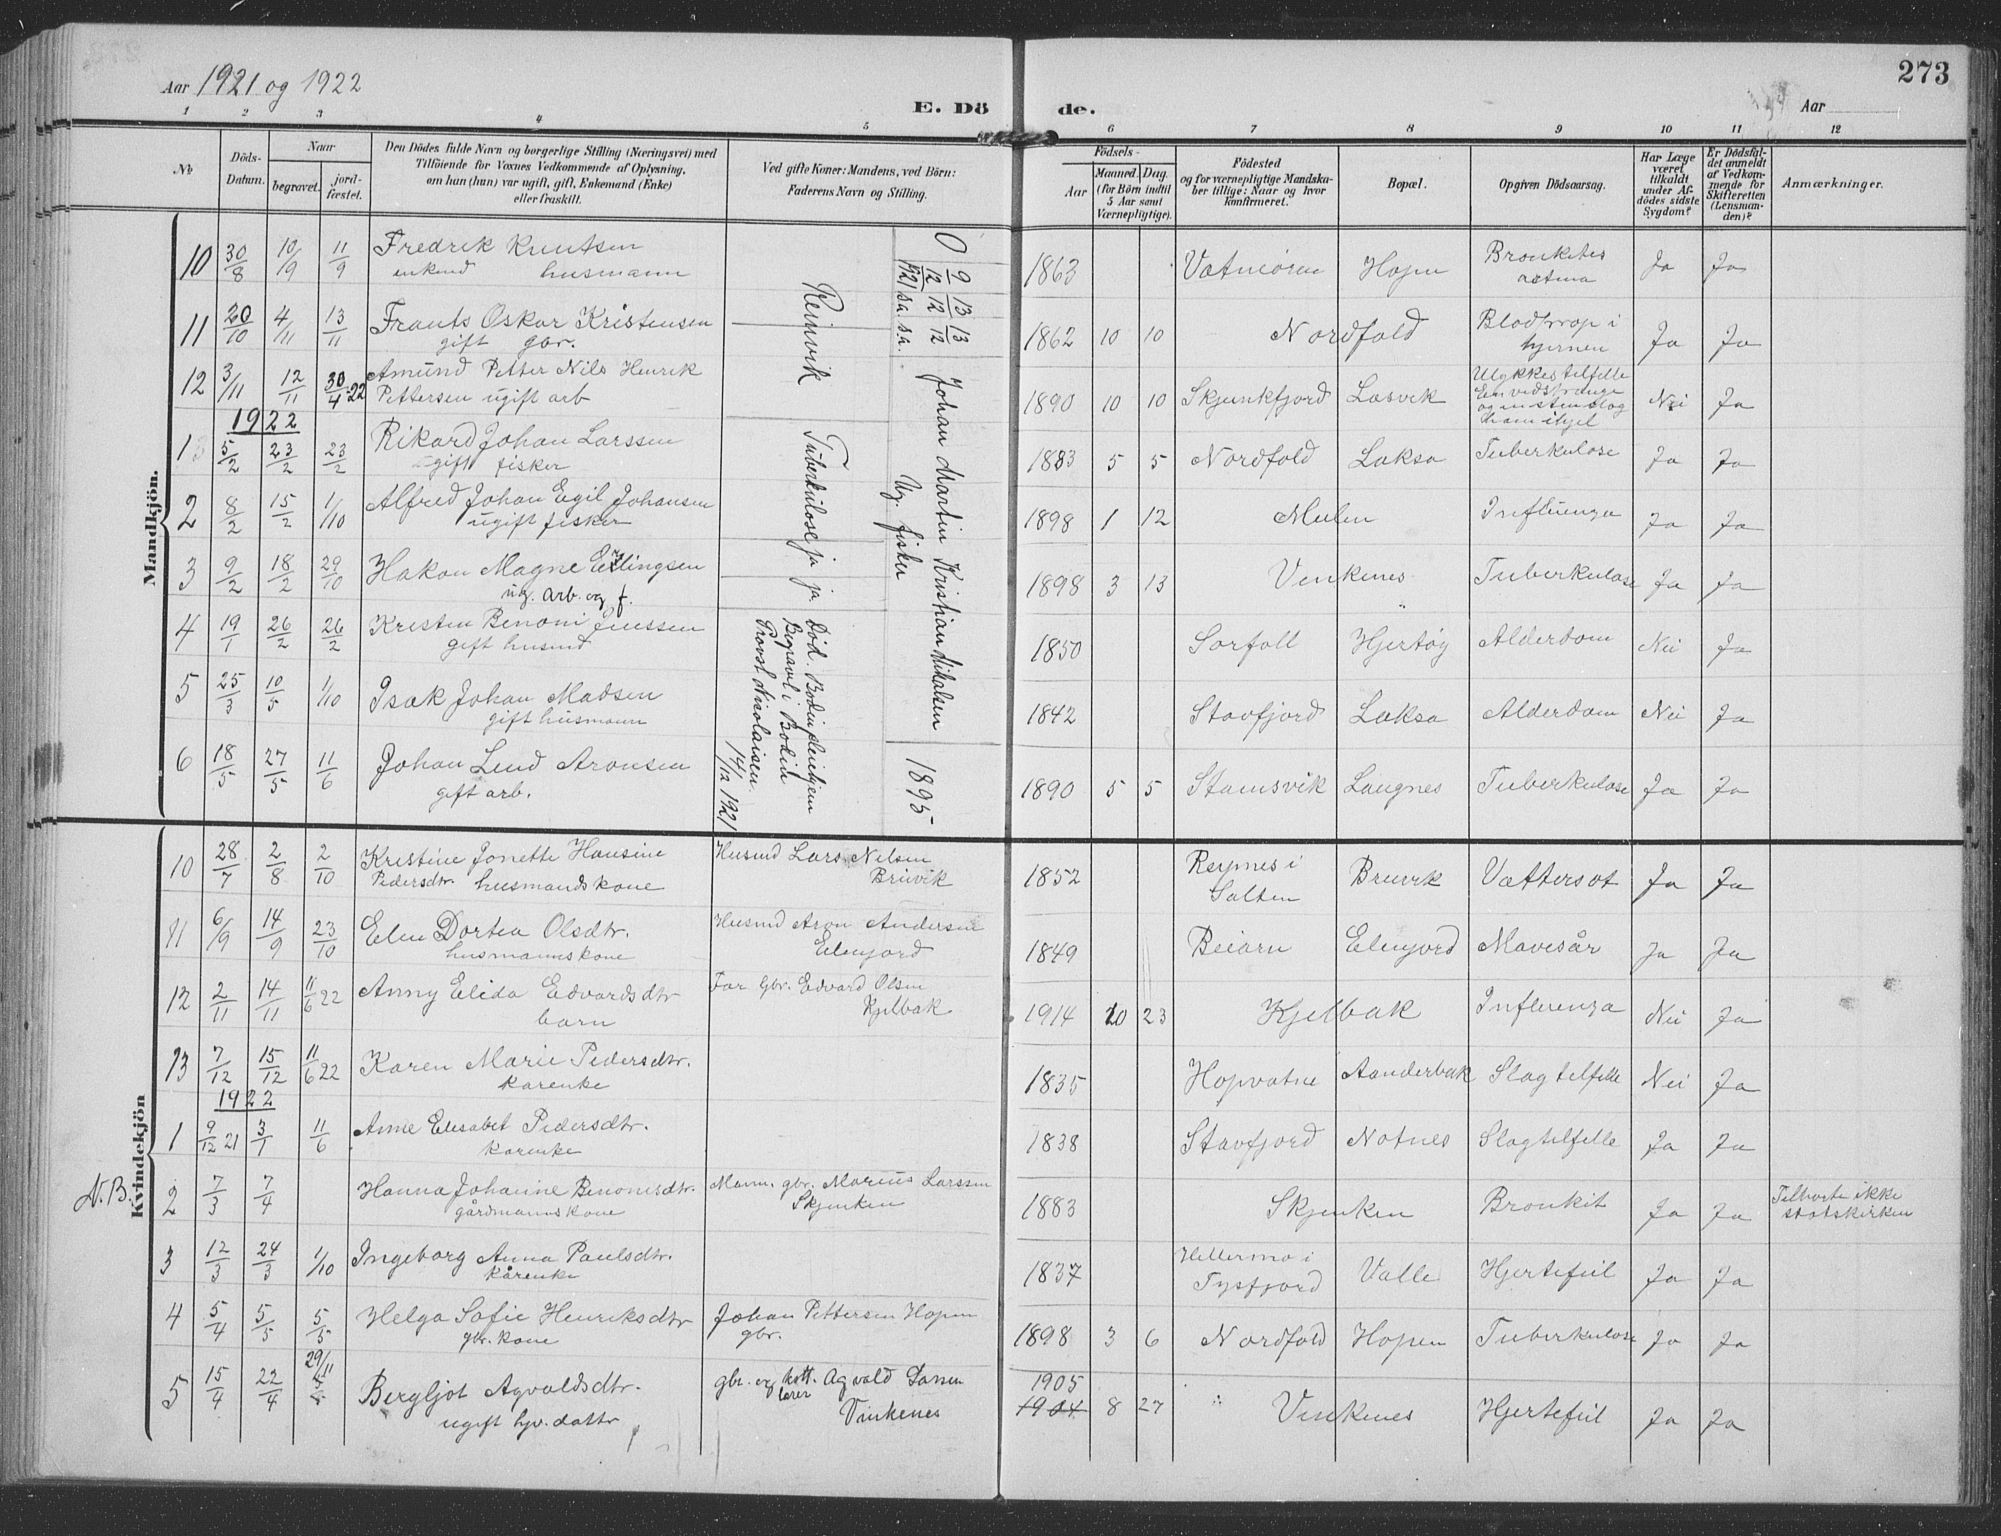 Aar 1921 og 1922
E. Dö
de.
Aar
273
1 2 3 4 5 6 7 8 9 10 11 12
No
Döds-Datum.
Naar
begravet.
jord-fæstet.
Den Dödes fulde Navn og borgerlige Stilling (Næringsvei) med
Tilföiende for Voxnes Vedkommende af Oplysning,
om han (hun) var ugift, gift, Enkemand (Enke)
eller fraskilt.
Ved gifte Koner: Mandens, ved Börn:
Faderens Navn og Stilling.
Födsels-
Aar
Maaned. Dag.
(for Börn indtil
5 Aar samt
Værnepligtige).
Födested
og for værnepligtige Mandska-
ber tillige: Naar og hvor
konfirmeret.
Bopæl.
Opgiven Dödsaarsag.
Har Læge
været
tilkaldt
under Af-
dödes sidste
Sygdom?
Er Dödsfal-
det anmeldt
af Vedkom-
mende for
Skifteretten
(Lensman-
den)?
Anmærkninger.
Mandkjön.
10 30/8 10/9 11/9 Fredrik Knutsen 1863 Hopen Bronkites Ja Ja
enkmd husmann astma
11 20/10 4/11 13/11 Frants Oskar Kristensen 1862 10 10 Nordfold Blodprop i Ja Ja
gift gbr. hjernen
12 3/11 12/11 30/4 22 Amund Petter Nils Henrik 1890 10 10 Skjunkfjord Løsvik Ulykkestilfelle Nei Ja
Pettersen ugift arb
og en sten slog
ham ihjel
1922
1 5/2 23/2 23/2 Rikard Johan Larssen 1883 5 5 Nordfold Laksa Tuberkulose Ja Ja
ugift fisker
2 8/2 15/2 1/10 Alfred Johan Egil Johansen 1898 1 12 Mulen Influenza Ja Ja
ugift fisker
3 9/2 18/2 29/10 Hakon Magne Erlingsen 1898 3 13 Vinkenes Tuberkulose Ja Ja
ug. arb. og f.
4 19/1 26/2 26/2 Kristen Benoni Jenssen 1850 Sørfoll Hjertøy Alderdom Nei Ja
gift husmd
5 25/3 10/5 1/10 Isak Johan Madsen 1842 Stavfjord Laksa Alderdom Nei Ja
gift husmann
6 18/5 27/5 11/6 Johan Lind Aronsen 1890 5 5 Stamsvik Langnes Tuberkulose Ja Ja
gift arb.
0 9/12 13/12 13/12 Johan Martin Kristian Mikalsen 1895
1921 s.a. s.a. Ug. fisker
Reinvik Tuberkulose ja ja Død. Bodin pleiehjem
Begravet i Bodin
Provst Nicolaisen. 14/12 1921
Kvindekjön
10 28/7 2/8 2/10 Kristine Jonette Hansine Husmd Lars Nilsen 1852 Røpnes i Bruvik Vattersot Ja Ja
Pedersdtr. husmandskone Bruvik Salten
11 6/9 14/9 23/10 Elen Dortea Olsdtr. Husmd Aron Andersen 1849 Beiarn Elvfjord Mavesår Ja Ja
husmannskone Elvfjord
12 2/11 14/11 11/6 22 Anny Elida Edvardsdtr Far Gbr. Edvard Olsen 1914 10 23 Kjelbak Influenza Nei Ja
barn Kjelbak
13 7/12 15/12 11/6 22 Karen Marie Pedersdtr. 1835 Hopvatne Aanderbak Slagtilfelle Nei Ja
kårenke
1922
1 9/12 21 3/1 11/6 Anne Elisabet Pedersdtr. 1838 Stavfjord Notnes Slagtilfelle Ja Ja
kårenke
N.B. 2 7/3 7/4 Hanna Johanine Benonisdtr. Mann. gbr. Marius Larssen 1883 Skjenken Bronkit Ja Ja Tilhørte ikke
gårdmannskone Skjenken statskirken
3 12/3 24/3 1/10 Ingeborg Anna Paulsdtr. 1837 Hellermo i Valle Hjertefeil Ja Ja
kårenke Tysfjord
4 5/4 5/5 5/5 Helga Sofie Henriksdtr Johan Pettersen Hopen 1898 3 6 Nordfold Hopen Tuberkulose Ja Ja
gbr. kone gbr.
5 15/4 22/4 29/11 Bergljot Agvaldsdtr. gbr. og Agvald 1905 1904 8 27 Vinkenes Hjertefeil Ja Ja
ugift hjv. datter lærer Vinkenes